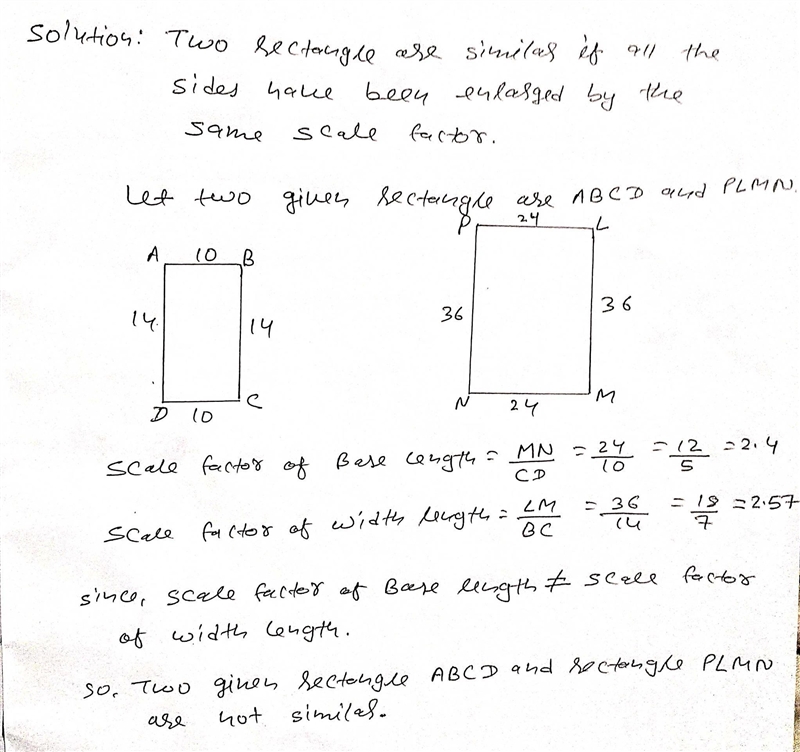 Solution: Two rectangle are similar if all the
sides have been enlarged by the
same scale factor.
Let two given rectangle are ABCD and PLMN.
A 10 B
14 14
D 10 C
P 24 L
36 36
N 24 M
Scale factor of Base length = MN/CD = 24/10 = 12/5 = 2.4
Scale factor of width length = LM/BC = 36/14 = 18/7 = 2.57
since, scale factor of Base length ≠ scale factor
of width length.
so, Two given rectangle ABCD and rectangle PLMN
are not similar.